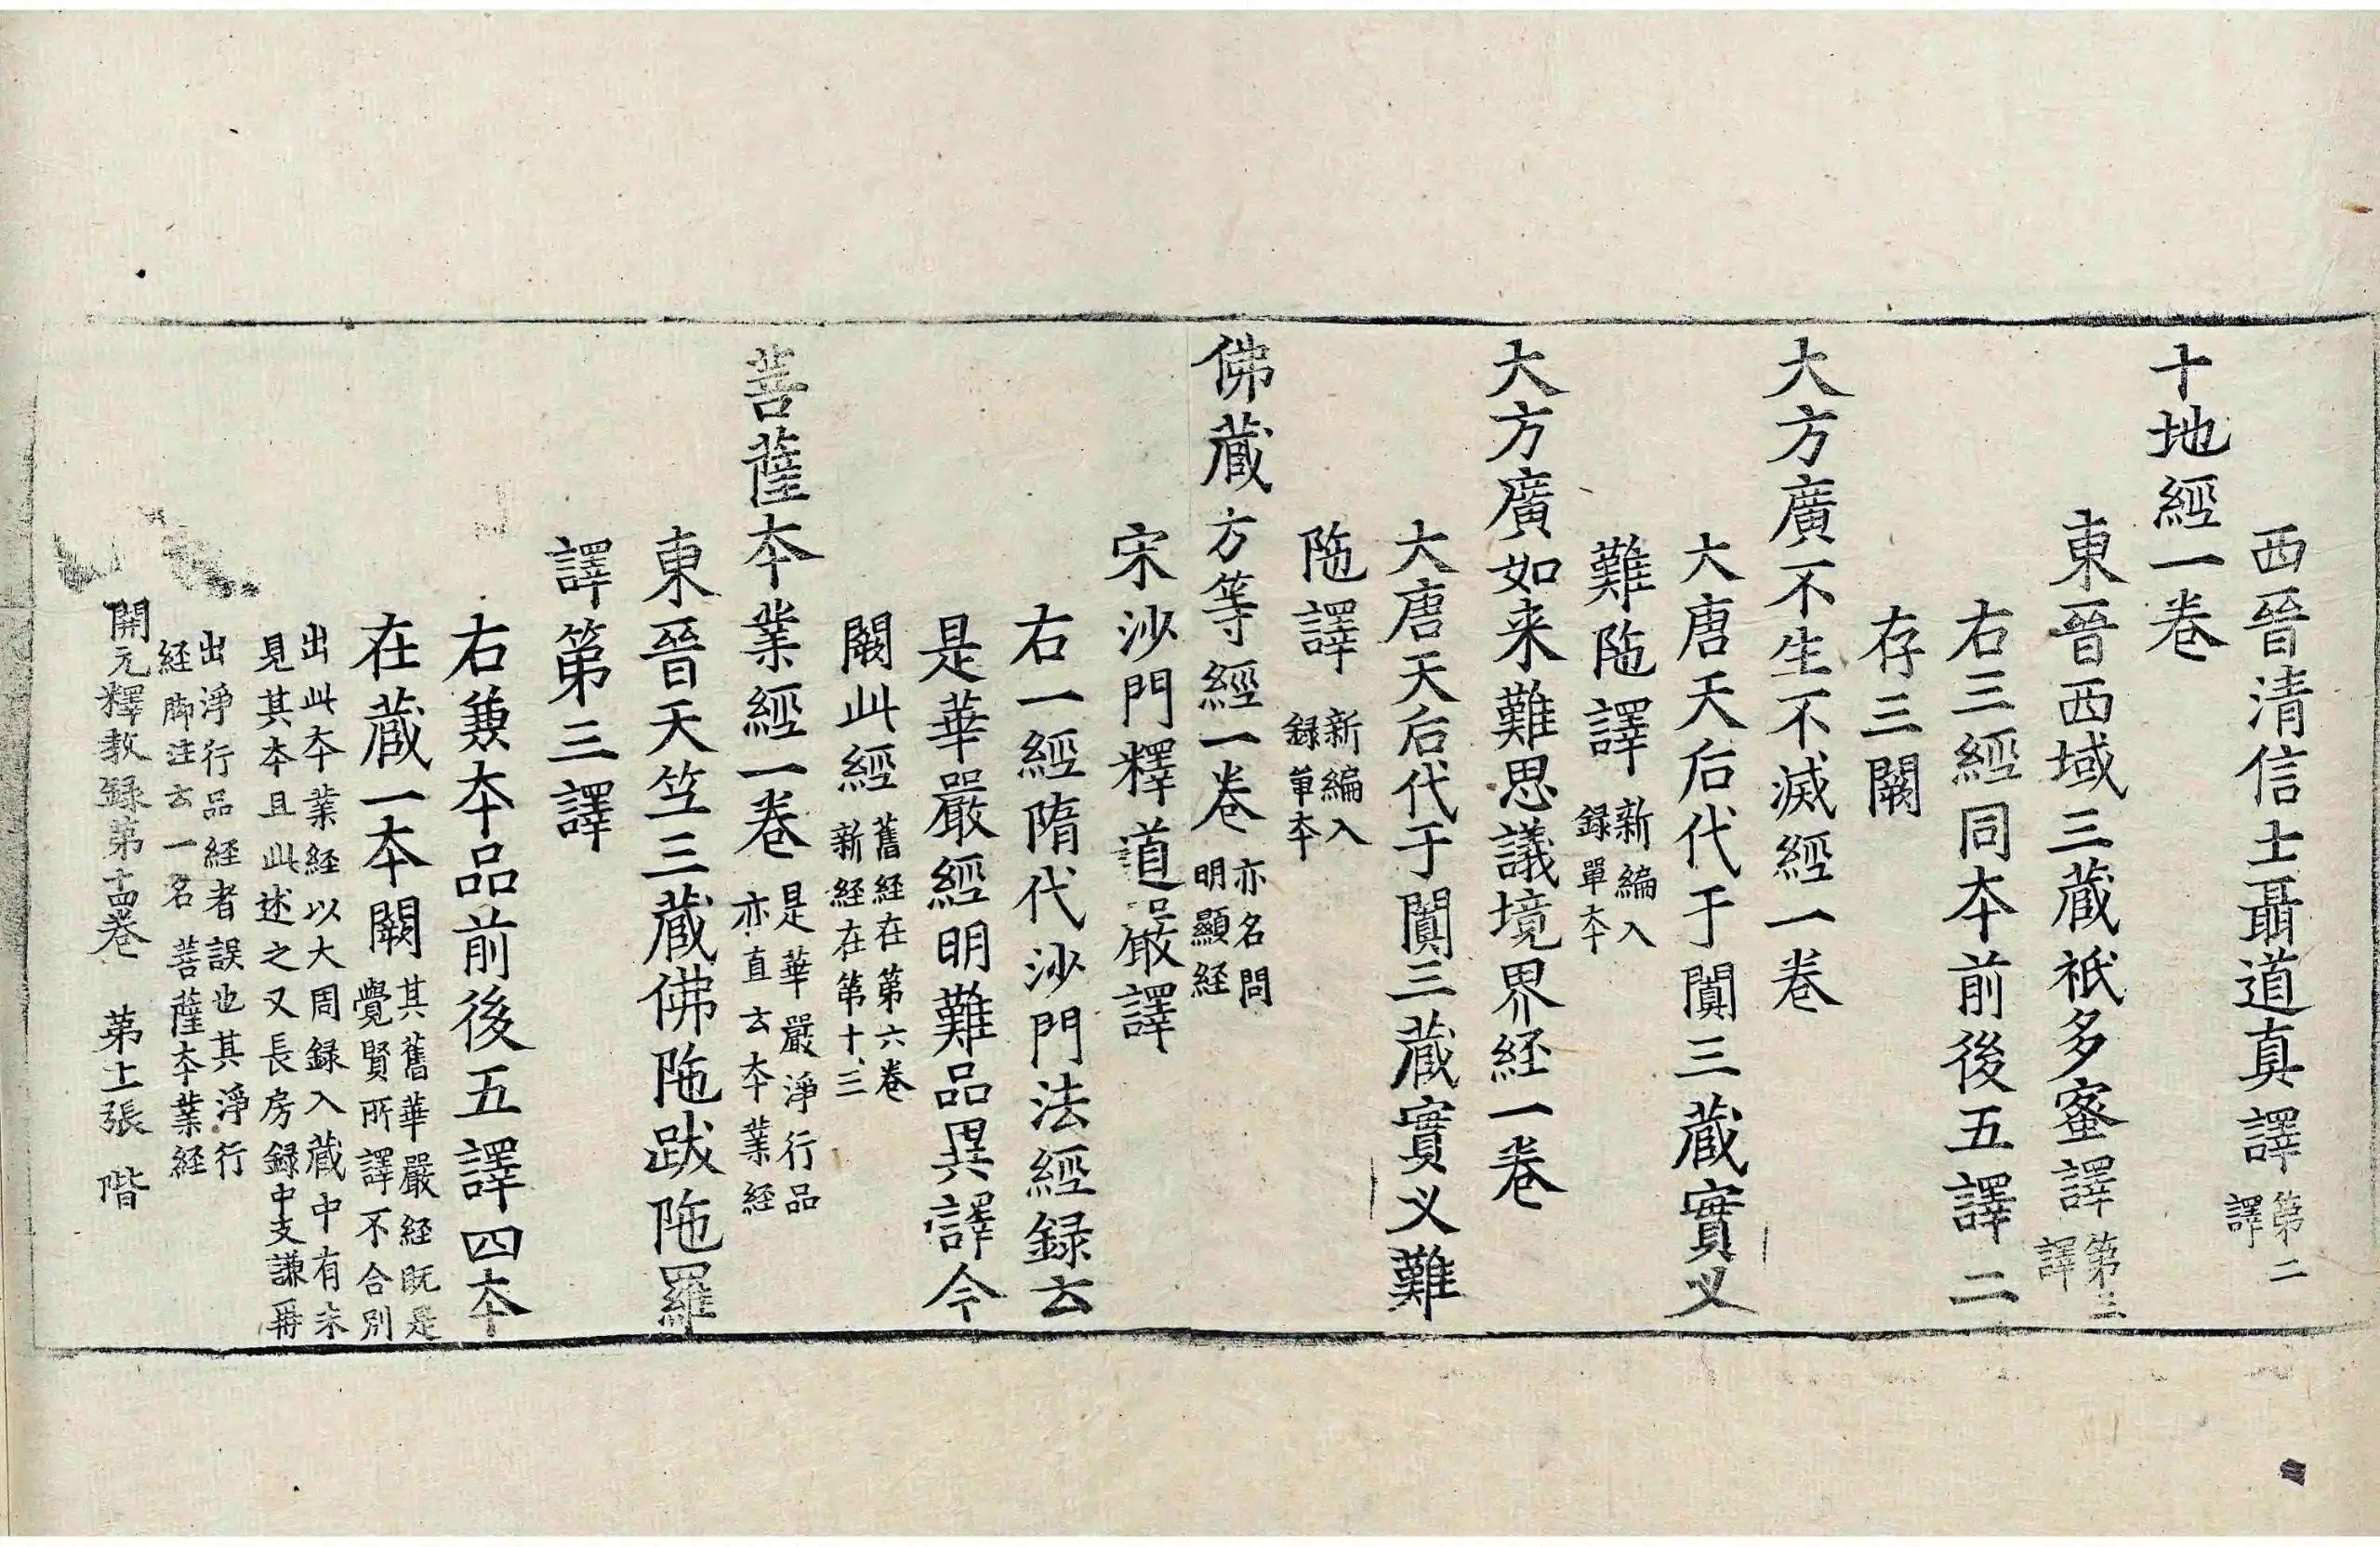 西晉清信士聶道真譯第二譯
十地經一卷
東晉西域三藏祇多蜜譯第三譯
右三經同本前後五譯二
存三闕
大方廣不生不滅經一卷
大唐天后代于闐三藏實叉
難陁譯新編入録單本
大方廣如来難思議境界経一卷
大唐天后代于闐三藏實叉難
陁譯新編入録單本
佛藏方等經一卷亦名問明顯経
宋沙門釋道嚴譯
右一經隋代沙門法經録云
是華嚴經明難品異譯今
闕此經舊経在第六卷新経在第十三
菩薩本業經一卷是華嚴淨行品亦直云本業経
東晉天竺三藏佛陁跋陁羅
譯第三譯
右兼本品前後五譯四本
在藏一本闕其舊華嚴経既是覺賢所譯不合別
出此本業経以大周録入藏中有未見其本且此述之又長房録中支謙再
出淨行品経者誤也其淨行経脚注云一名菩薩本業経
開元釋教録第十四卷　第十張　階